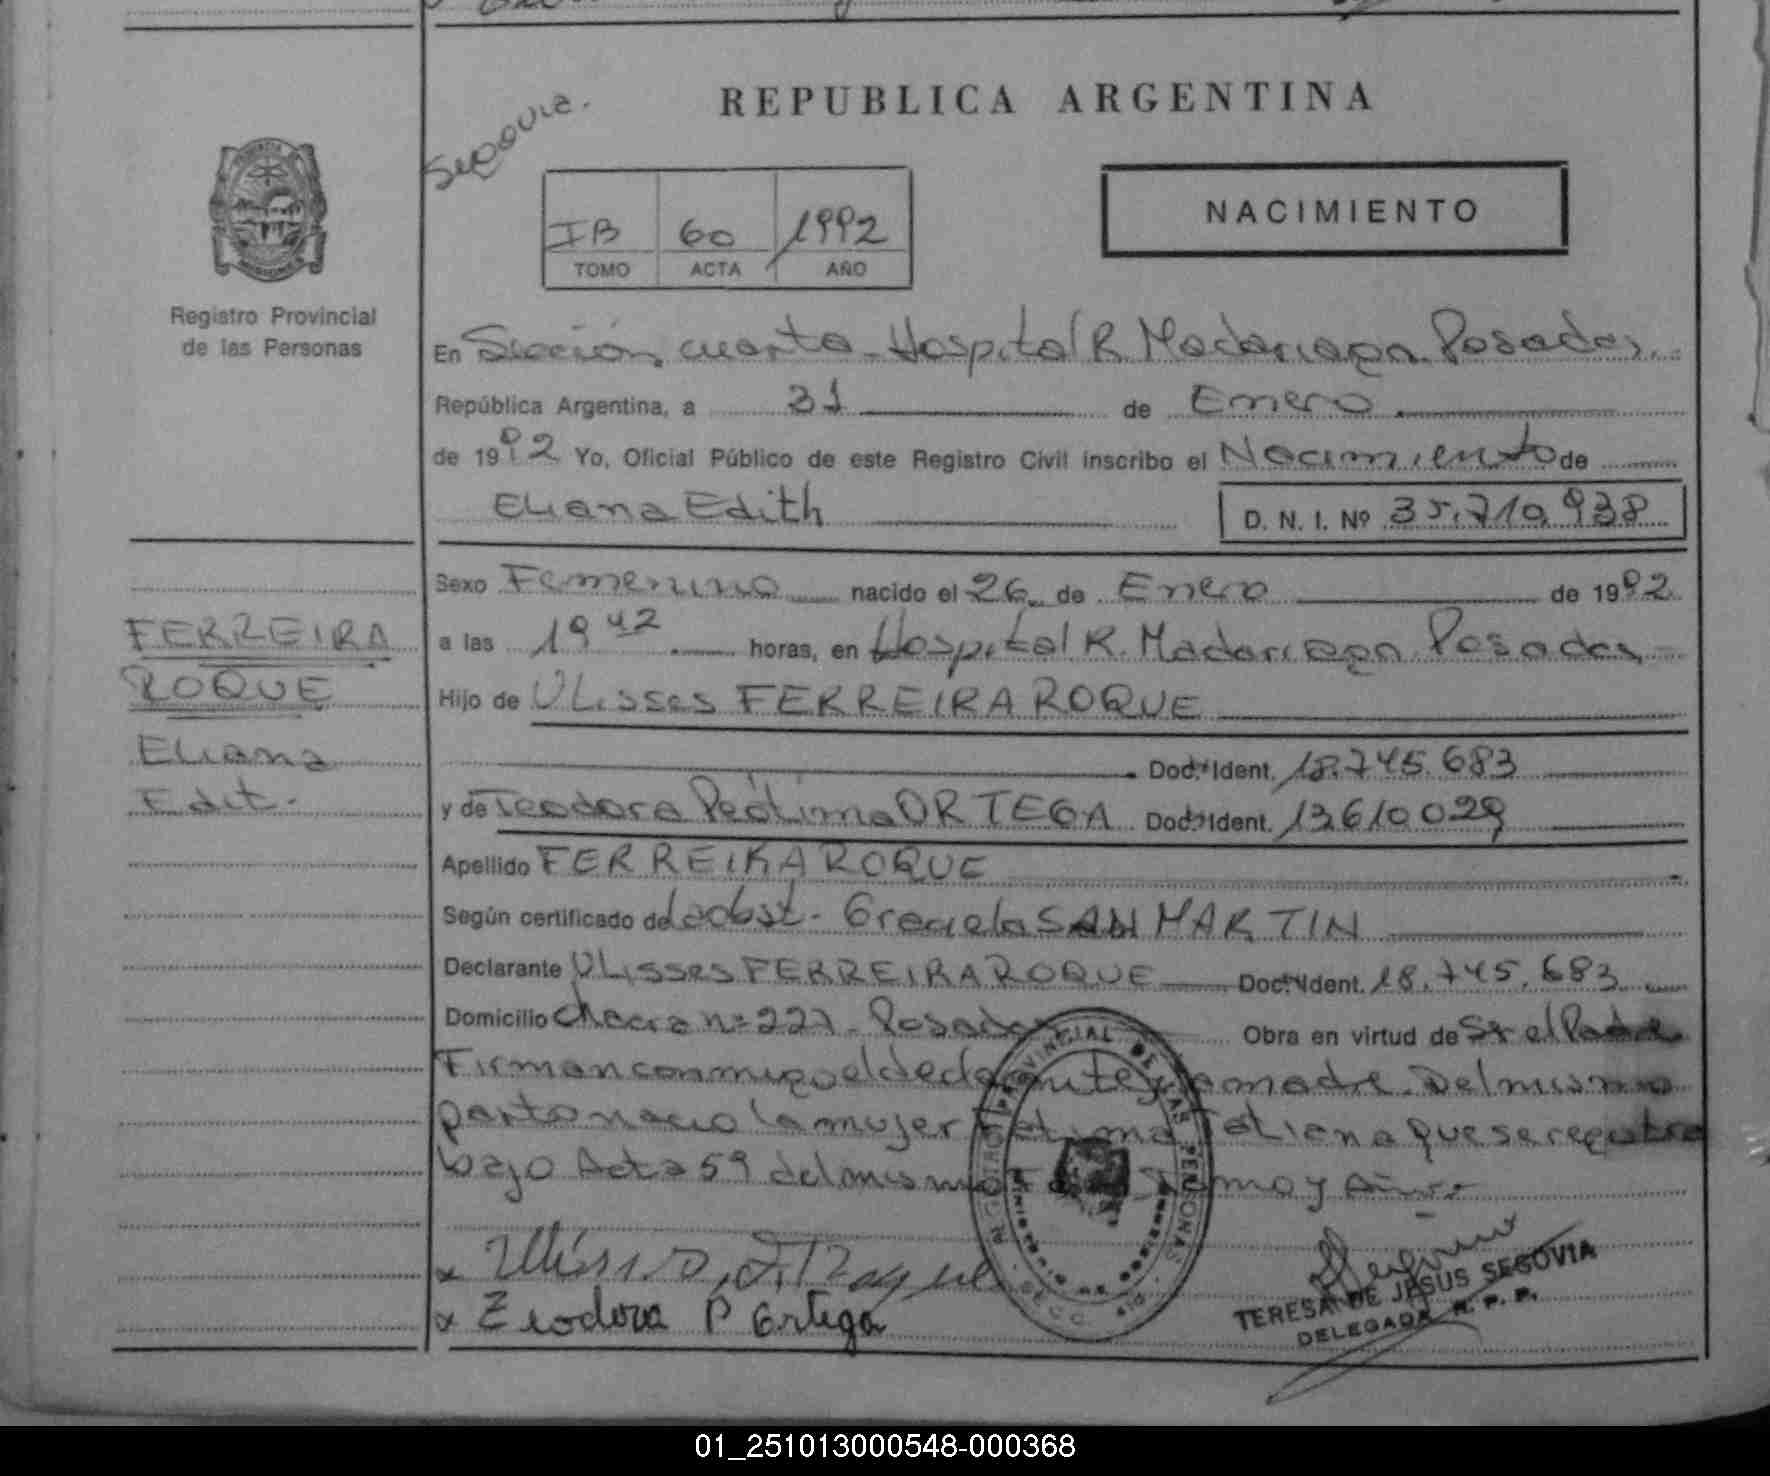 REPUBLICA ARGENTINA
NACIMIENTO
IB 60 1992
TOMO ACTA AÑO
Registro Provincial
de las Personas
En Sección cuarta Hospital R. Madariaga Posadas
República Argentina, a 31 de Enero
de 1992 Yo, Oficial Público de este Registro Civil inscribo el Nacimiento de
Eliana Edith D. N. I. Nº 35.710.938
Sexo Femenino nacido el 26 de Enero de 1992
FERREIRA
ROQUE
Eliana
Edit.
a las 19 42 horas, en Hospital R. Madariaga Posadas
Hijo de Ulisses FERREIRA ROQUE
Doc. Ident. 18.745.683
y de Teodora ORTEGA Doc. Ident. 13610029
Apellido FERREIRA ROQUE
Según certificado de la obst. Graciela SAN MARTIN
Declarante Ulisses FERREIRA ROQUE Doc. Ident. 18.745.683
Domicilio Chacra nº 227 Posadas Obra en virtud de Sr el Padre
Firman conmigo el declarante y la madre. Del mismo
parto nacio la mujer Fatima Tatiana que se registra
bajo Acta 59 del mismo Tomo y Año
REGISTRO PROVINCIAL DE LAS PERSONAS
Teodora P Ortega
TERESA DE JESUS SEGOVIA
DELEGADA R. P. P.
01_251013000548-000368